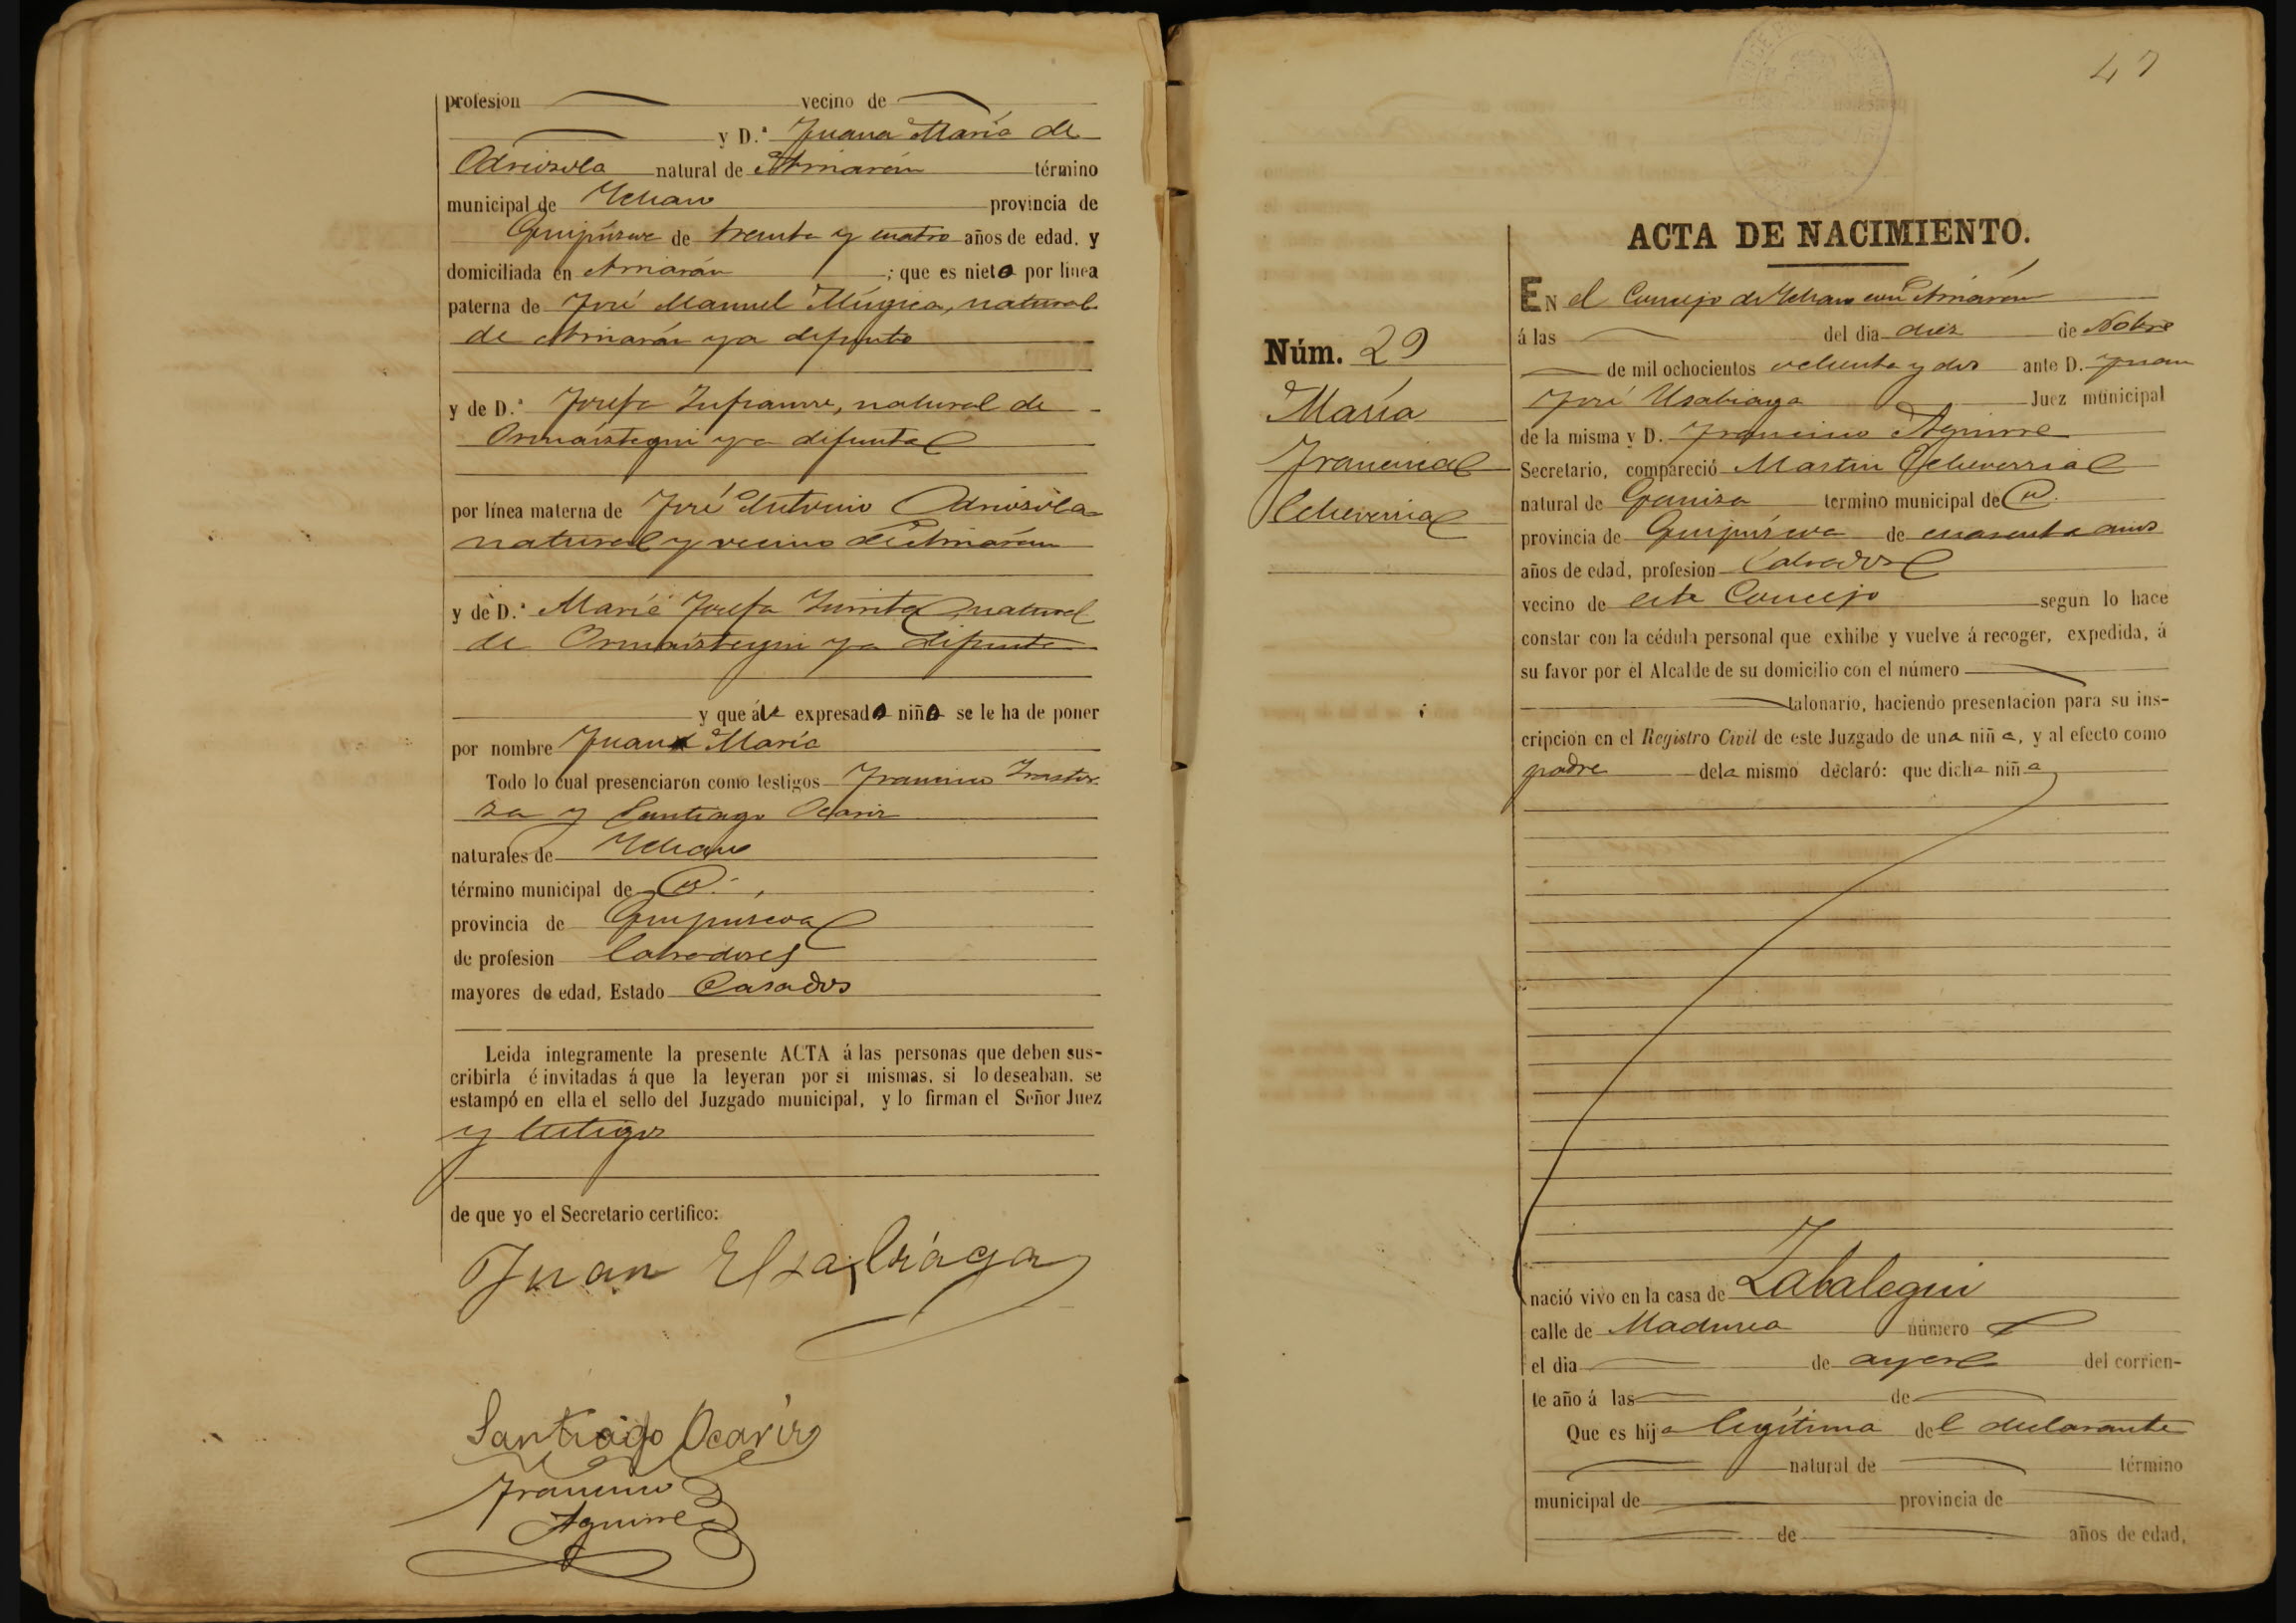 profesion vecino de
y D.ª Juana María de
Odriozola natural de Arriarán término
municipal de Ichaso provincia de
Guipúzcoa de treinta y cuatro años de edad, y
domiciliada en Arriarán ; que es nieto por linea
paterna de José Manuel Múgica, natural
de Arriarán ya difunto
y de D.ª Josefa Insausti, natural de
Ormáiztegui ya difunta
por línea materna de José Antonio Odriozola
natural y vecino de Arriarán
y de D.ª María Josefa natural
de Ormáiztegui ya difunta
y que al expresado niño se le ha de poner
por nombre Juan María
Todo lo cual presenciaron como testigos Francisco
za y Santiago Ocariz
naturales de Ichaso
término municipal de id.
provincia de Guipúzcoa
de profesion labradores
mayores de edad, Estado Casados
Leida integramente la presente ACTA á las personas que deben sus-
cribirla é invitadas á que la leyeran por si mismas, si lo deseaban, se
estampó en ella el sello del Juzgado municipal, y lo firman el Señor Juez
y testigos
de que yo el Secretario certifico:
Juan Usabiaga
Santiago Ocariz
Francisco
Aguirre
47
ACTA DE NACIMIENTO.
Núm. 29
María
Francisca
Echeverria
EN el Concejo de Ichaso con Arriarán
á las del dia diez de Nobre
de mil ochocientos ochenta y dos ante D. Juan
José Usabiaga Juez municipal
de la misma y D. Francisco Aguirre
Secretario, compareció Martin Echeverria
natural de Gaviria termino municipal de id.
provincia de Guipúzcoa de cuarenta años
años de edad, profesion labrador
vecino de este Concejo segun lo hace
constar con la cédula personal que exhibe y vuelve á recoger, expedida, á
su favor por el Alcalde de su domicilio con el número
talonario, haciendo presentacion para su ins-
cripcion en el Registro Civil de este Juzgado de una niña, y al efecto como
padre dela mismo declaró: que dicha niña
nació vivo en la casa de Zabalegui
calle de número
el dia de ayer del corrien-
te año á las de
Que es hija legítima del declarante
natural de término
municipal de provincia de
de años de edad,